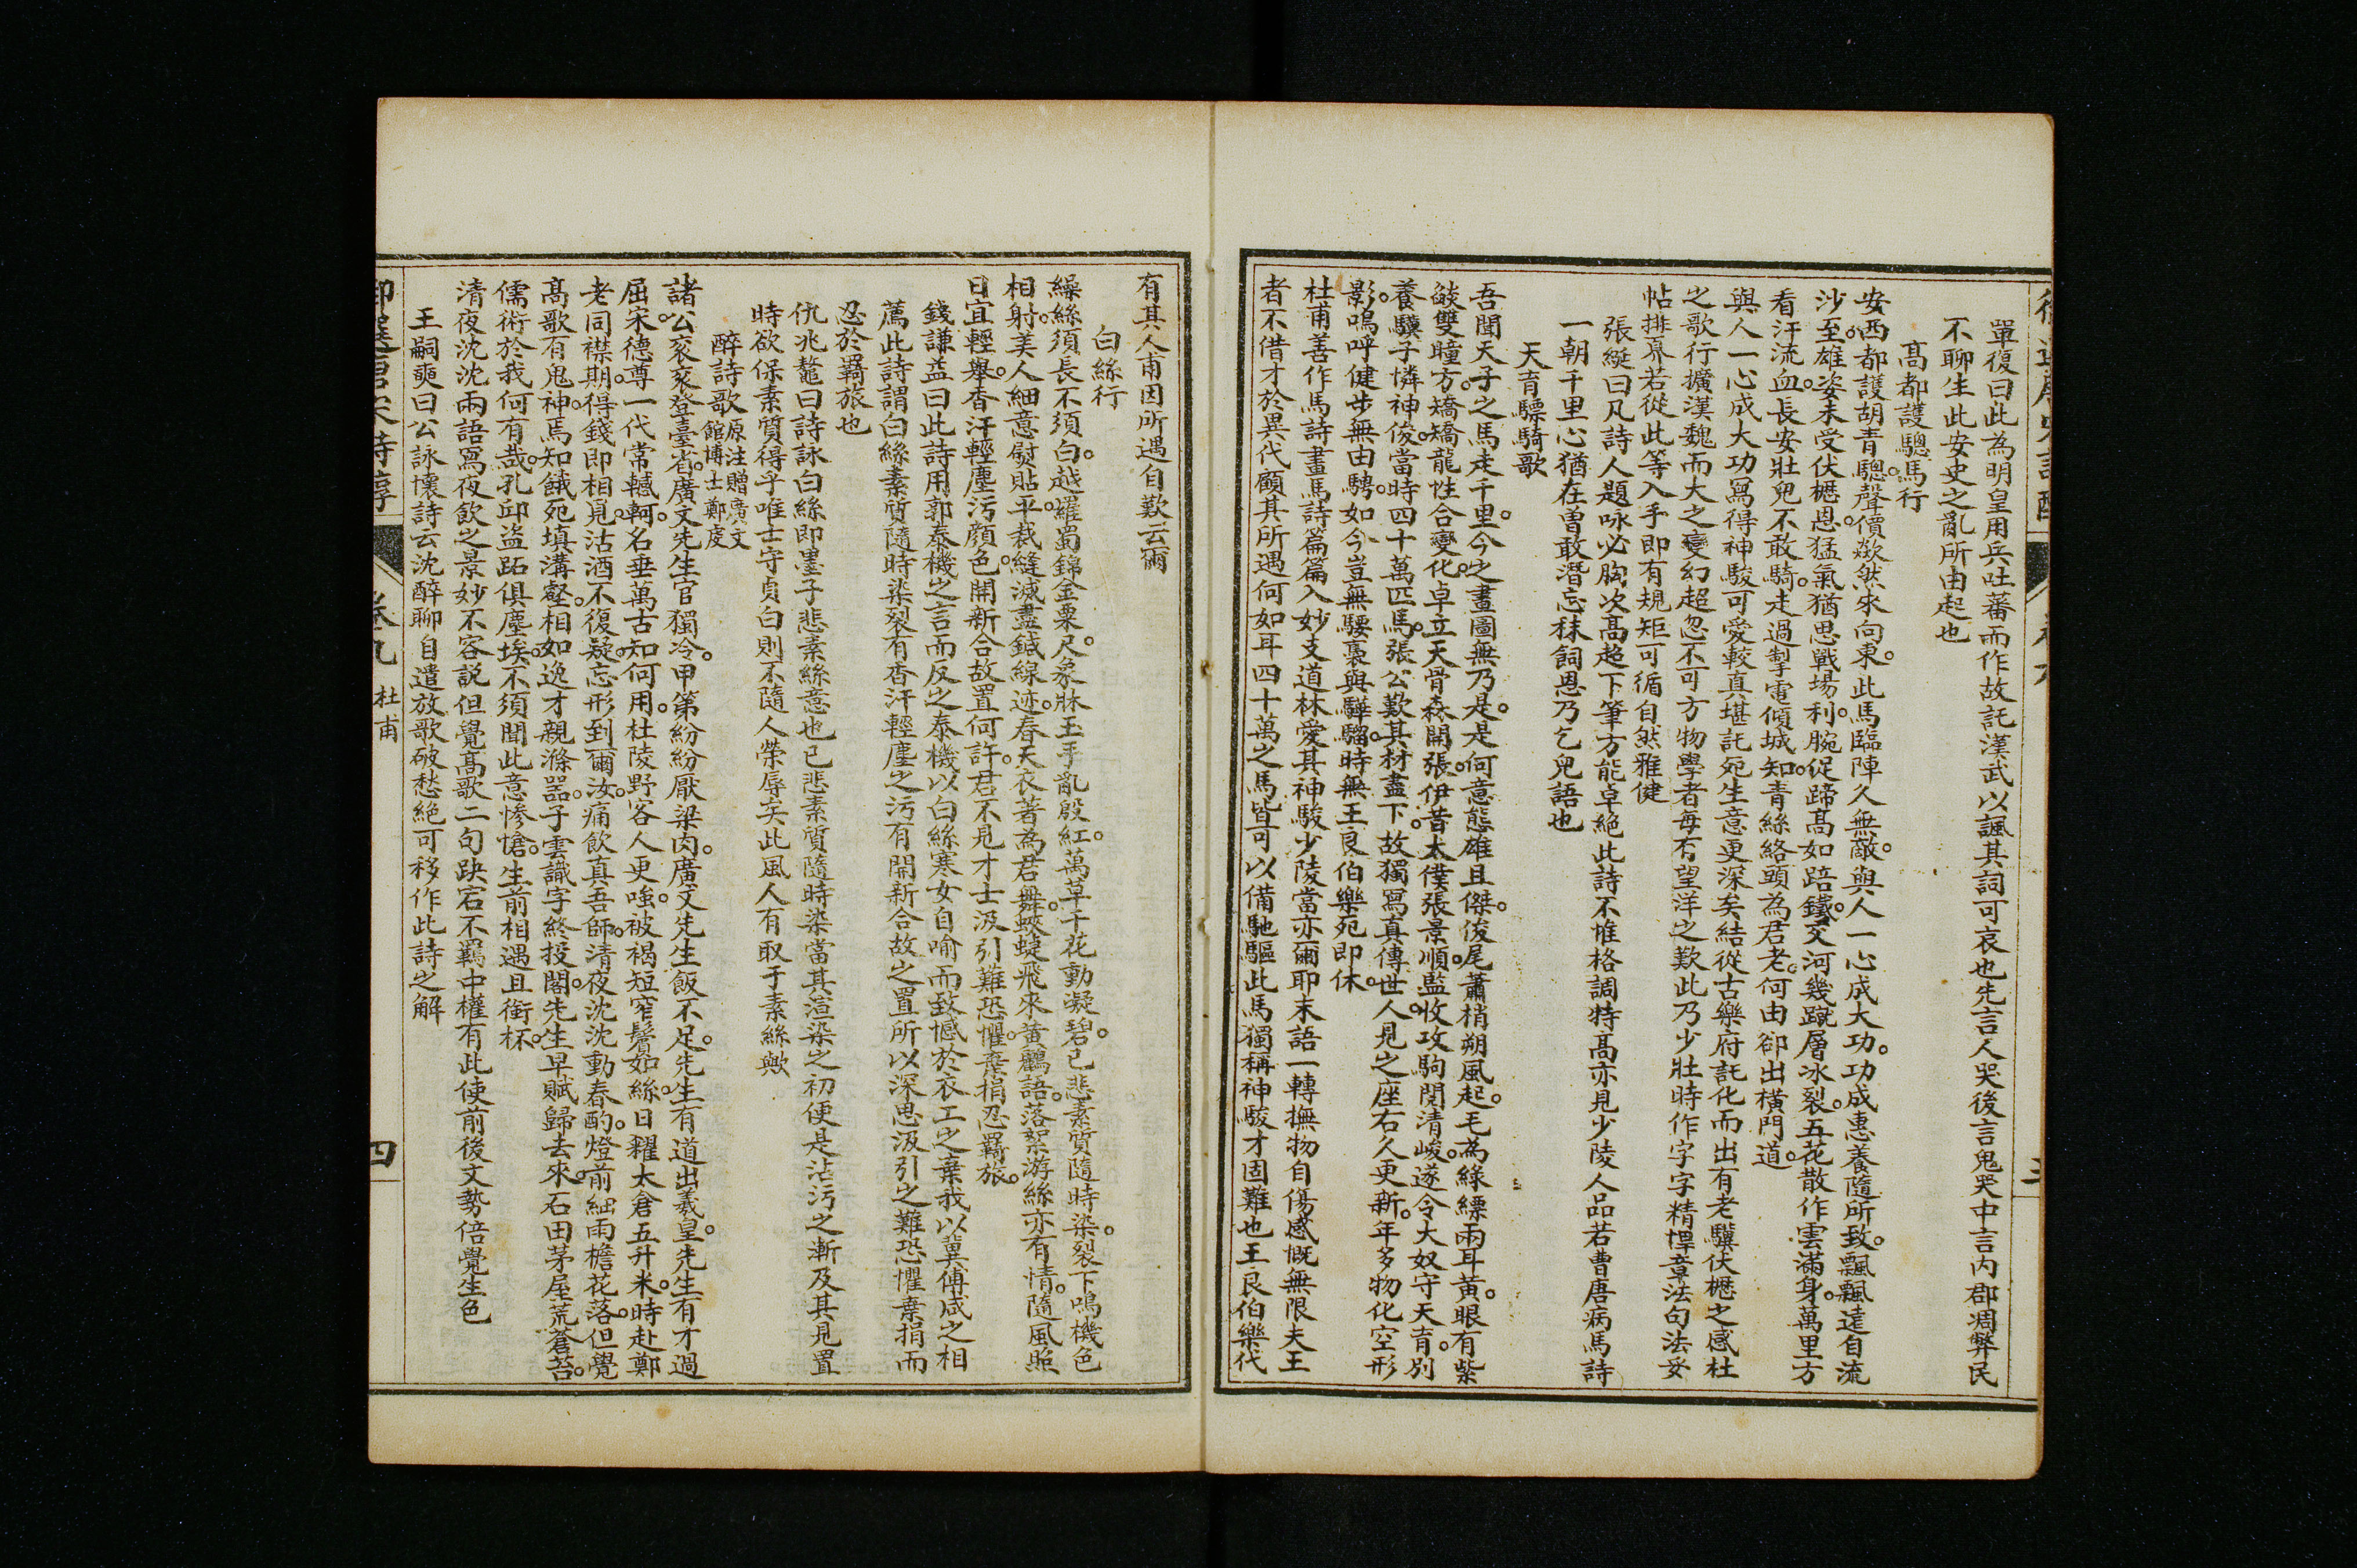 單復曰此為明皇用兵吐蕃而作故託漢武以諷其詞可哀也先言人哭後言鬼哭中言內郡凋弊民
不聊生此安史之亂所由起也
高都護驄馬行
安西都護胡青驄。聲價歘然來向東。此馬臨陣久無敵。與人一心成大功。功成惠養隨所致。飄飄遠自流
沙至。雄姿未受伏櫪恩。猛氣猶思戰場利。腕促蹄高如踣鐵。交河幾蹴層冰裂。五花散作雲滿身。萬里方
看汗流血。長安壯兒不敢騎。走過掣電傾城知。青絲絡頭為君老。何由卻出橫門道。
與人一心成大功寫得神駿可愛較真堪託死生意更深矣結從古樂府託化而出有老驥伏櫪之感杜
之歌行擴漢魏而大之變幻超忽不可方物學者每有望洋之歎此乃少壯時作字字精悍章法句法妥
帖排奡若從此等入手即有規矩可循自然雅健
張綖曰凡詩人題咏必胸次高超下筆方能卓絕此詩不惟格調特高亦見少陵人品若曹唐病馬詩
一朝千里心猶在曾敢潛忘秣飼恩乃乞兒語也
天育驃騎歌
吾聞天子之馬走千里。今之畫圖無乃是。是何意態雄且傑。俊尾蕭梢朔風起。毛為綠縹兩耳黃。眼有紫
燄雙瞳方。矯矯龍性合變化。卓立天骨森開張。伊昔太僕張景順。監收攻駒閱清峻。遂令大奴守天育。別
養驥子憐神俊。當時四十萬匹馬。張公歎其材盡下。故獨寫真傳世人。見之座右久更新。年多物化空形
影。嗚呼健步無由騁。如今豈無騕褭與驊騮。時無王良伯樂死即休。
杜甫善作馬詩畫馬詩篇篇入妙支道林愛其神駿少陵當亦爾耶末語一轉撫物自傷感慨無限夫王
者不借才於異代顧其所遇何如耳四十萬之馬皆可以備馳驅此馬獨稱神駿才固難也王良伯樂代
有其人甫因所遇自歎云爾
白絲行
繰絲須長不須白。越羅蜀錦金粟尺。象牀玉手亂殷紅。萬草千花動凝碧。已悲素質隨時染。裂下鳴機色
相射。美人細意熨貼平。裁縫滅盡鍼線迹。春天衣著為君舞。蛺蜨飛來黃鸝語。落絮游絲亦有情。隨風照
日宜輕舉。香汗輕塵污顏色。開新合故置何許。君不見才士汲引難。恐懼棄捐忍羇旅。
錢謙益曰此詩用郭泰機之言而反之泰機以白絲寒女自喻而致憾於衣工之棄我以冀傅咸之相
薦此詩謂白絲素質隨時染裂有香汗輕塵之污有開新合故之置所以深思汲引之難恐懼棄捐而
忍於羇旅也
仇兆鰲曰詩詠白絲即墨子悲素絲意也已悲素質隨時染當其渲染之初便是沾污之漸及其見置
時欲保素質得乎唯士守貞白則不隨人榮辱矣此風人有取于素絲歟
醉詩歌原注贈廣文館博士鄭虔
諸公衮衮登臺省。廣文先生官獨冷。甲第紛紛厭粱肉。廣文先生飯不足。先生有道出羲皇。先生有才過
屈宋。德尊一代常轗軻。名垂萬古知何用。杜陵野客人更嗤。被褐短窄鬢如絲。日糴太倉五升米。時赴鄭
老同襟期。得錢即相見。沽酒不復疑。忘形到爾汝。痛飲真吾師。清夜沈沈動春酌。燈前細雨檐花落。但覺
高歌有鬼神。焉知餓死填溝壑。相如逸才親滌器。子雲識字終投閣。先生早賦歸去來。石田茅屋荒蒼苔。
儒術於我何有哉。孔邱盜跖俱塵埃。不須聞此意慘愴。生前相遇且銜杯。
清夜沈沈兩語寫夜飲之景妙不容說但覺高歌二句跌宕不羈中權有此使前後文勢倍覺生色
王嗣奭曰公詠懷詩云沈醉聊自遣放歌破愁絕可移作此詩之解
御選唐宋詩醇 卷九 杜甫 四